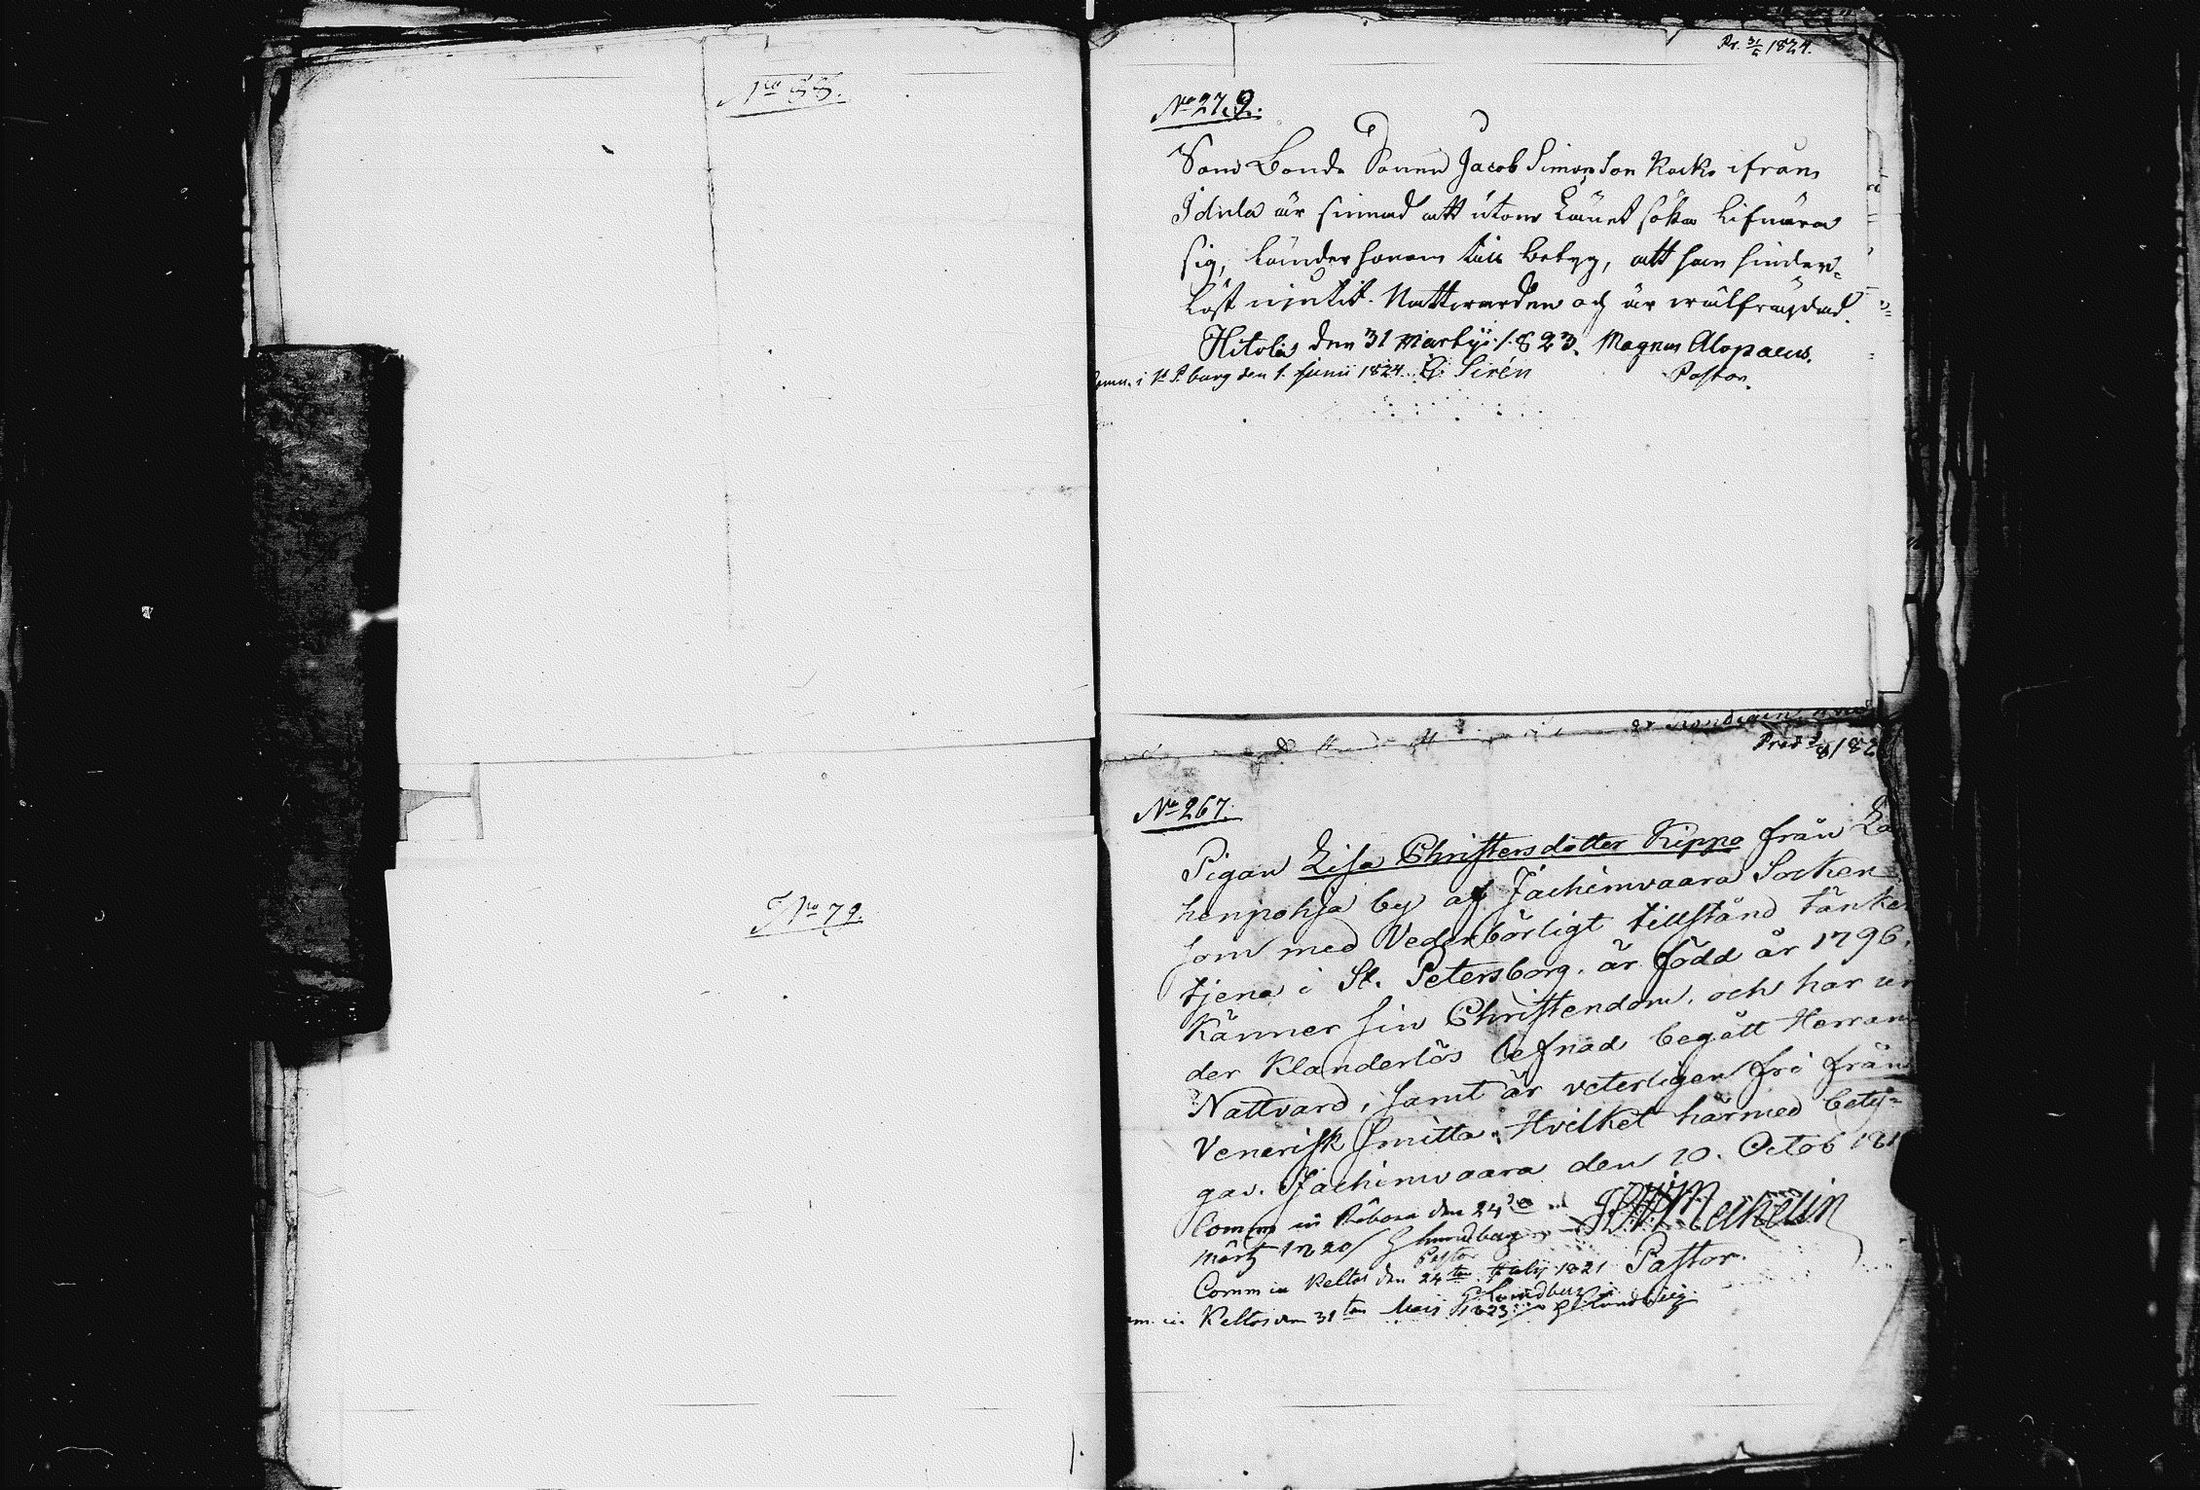 No 55.
No 79.
Pr. 31/5 1824.
No 279.
Som Bonde Sonen Jacob Simonsson Kocko ifrån
Idula är sinnad att utom Länet söka lifnära
sig, länder honom till betyg, att han hinder-
löst njutit Nattwarden och är wälfräjdad.
Hitola den 31 Martii 1823. Magnus Alopaeus.
Pastor.
Comm. i St P.burg den 1. Junii 1824. Sirén
No 267.
Pigan Lisa Christersdotter Kippo från La
henpohja by af Jachimvaara Socken
som med Vederbörligt tillstånd tänker
tjena i St. Petersborg, är född år 1796,
Känner sin Christendom, och har un
der Klanderlös lefnad begått Herrans
Nattvard, samt är veterligen fri från
Venerisk smitta. Hvilket härmed bety-
gas. Jachimvaara den 10. Octob 181
Mechelin
Pastor.
Comm in den 24
Märtz 1820
Pastor
Comm in Keltos den 24ten July 1821
Lundberg
m. in Keltos den 31ten Maij 1823